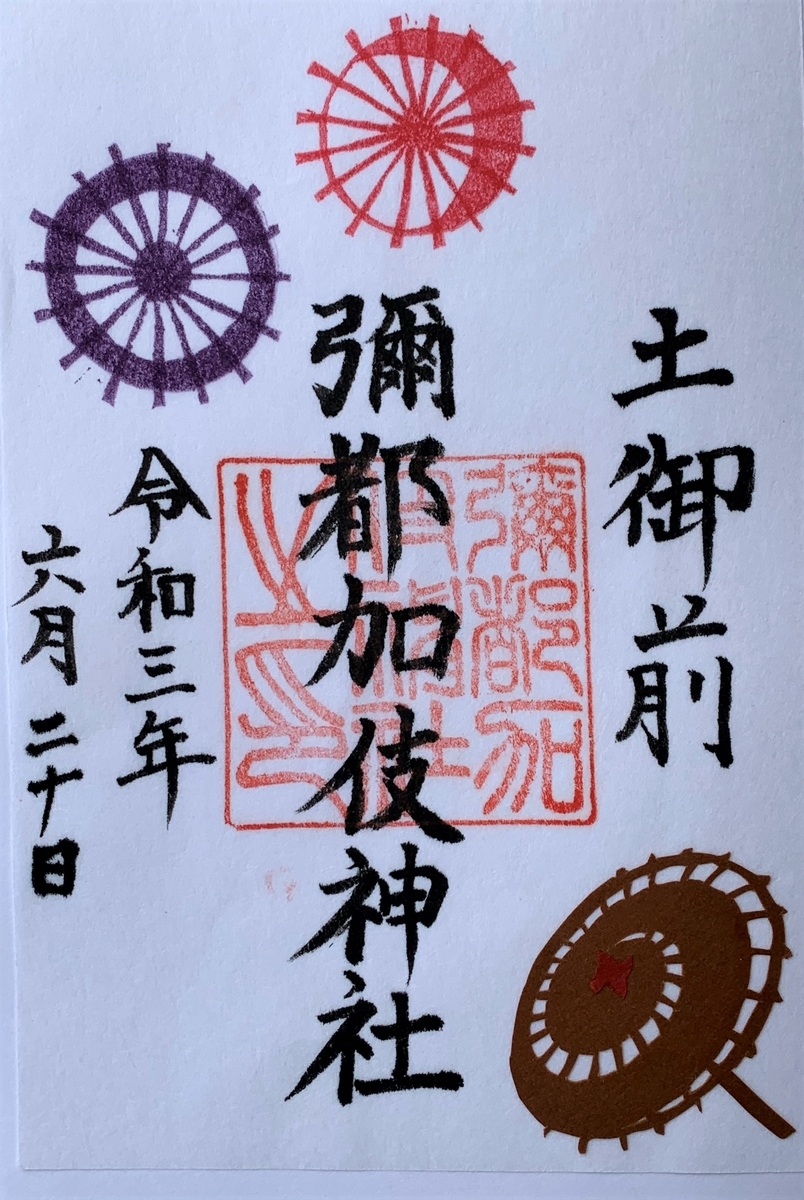 土御前
彌都加伎神社
令和三年
六月二十日
彌都加
之印